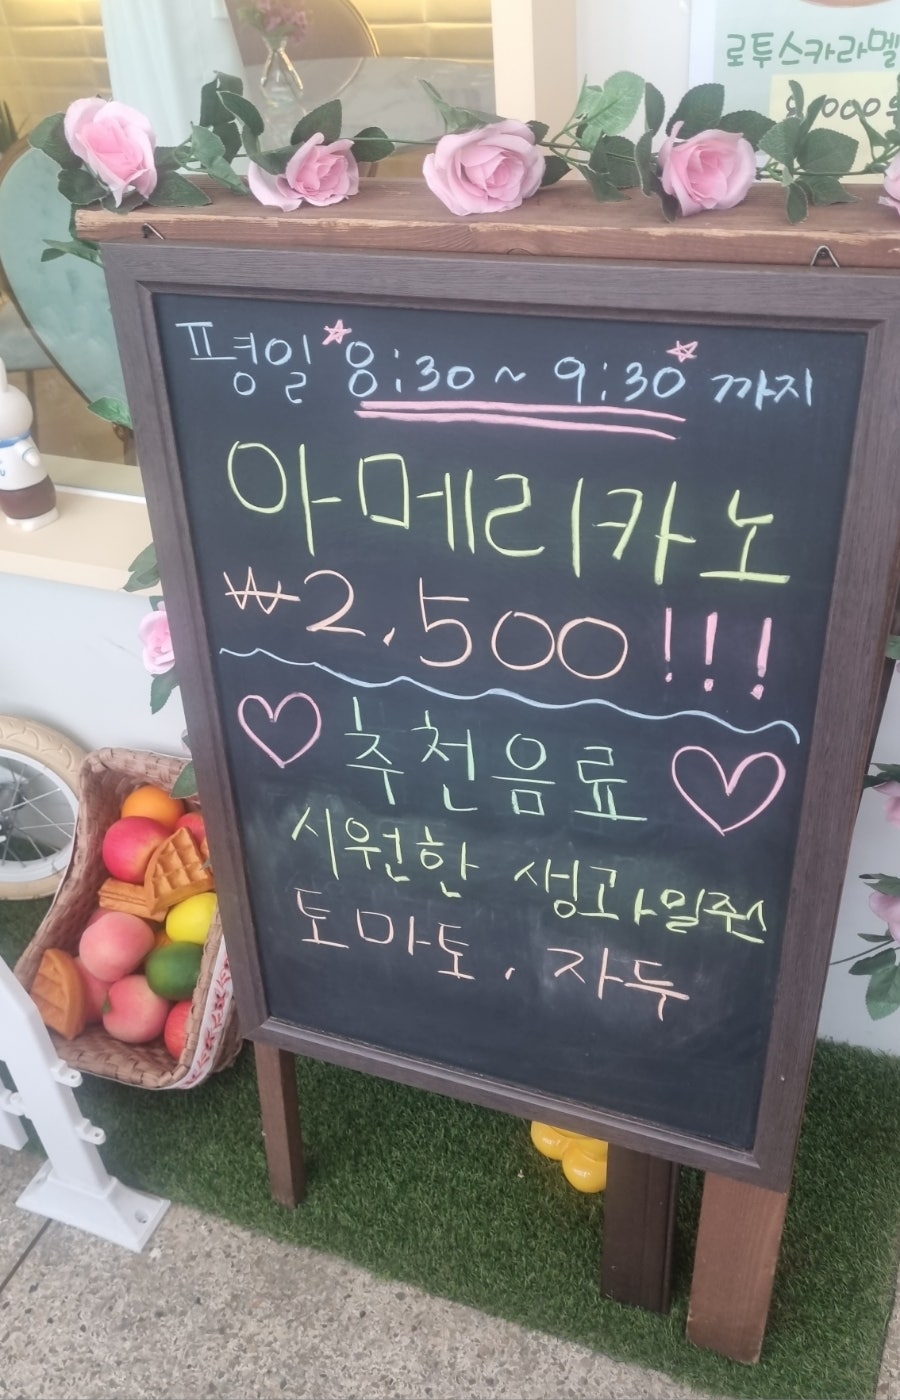 로투스카라멜
평일 *8:30 ~ 9:30* 까지
아메리카노
₩2,500 !!!
♡ 추천음료 ♡
시원한 생과일쥬스
토마토, 자두